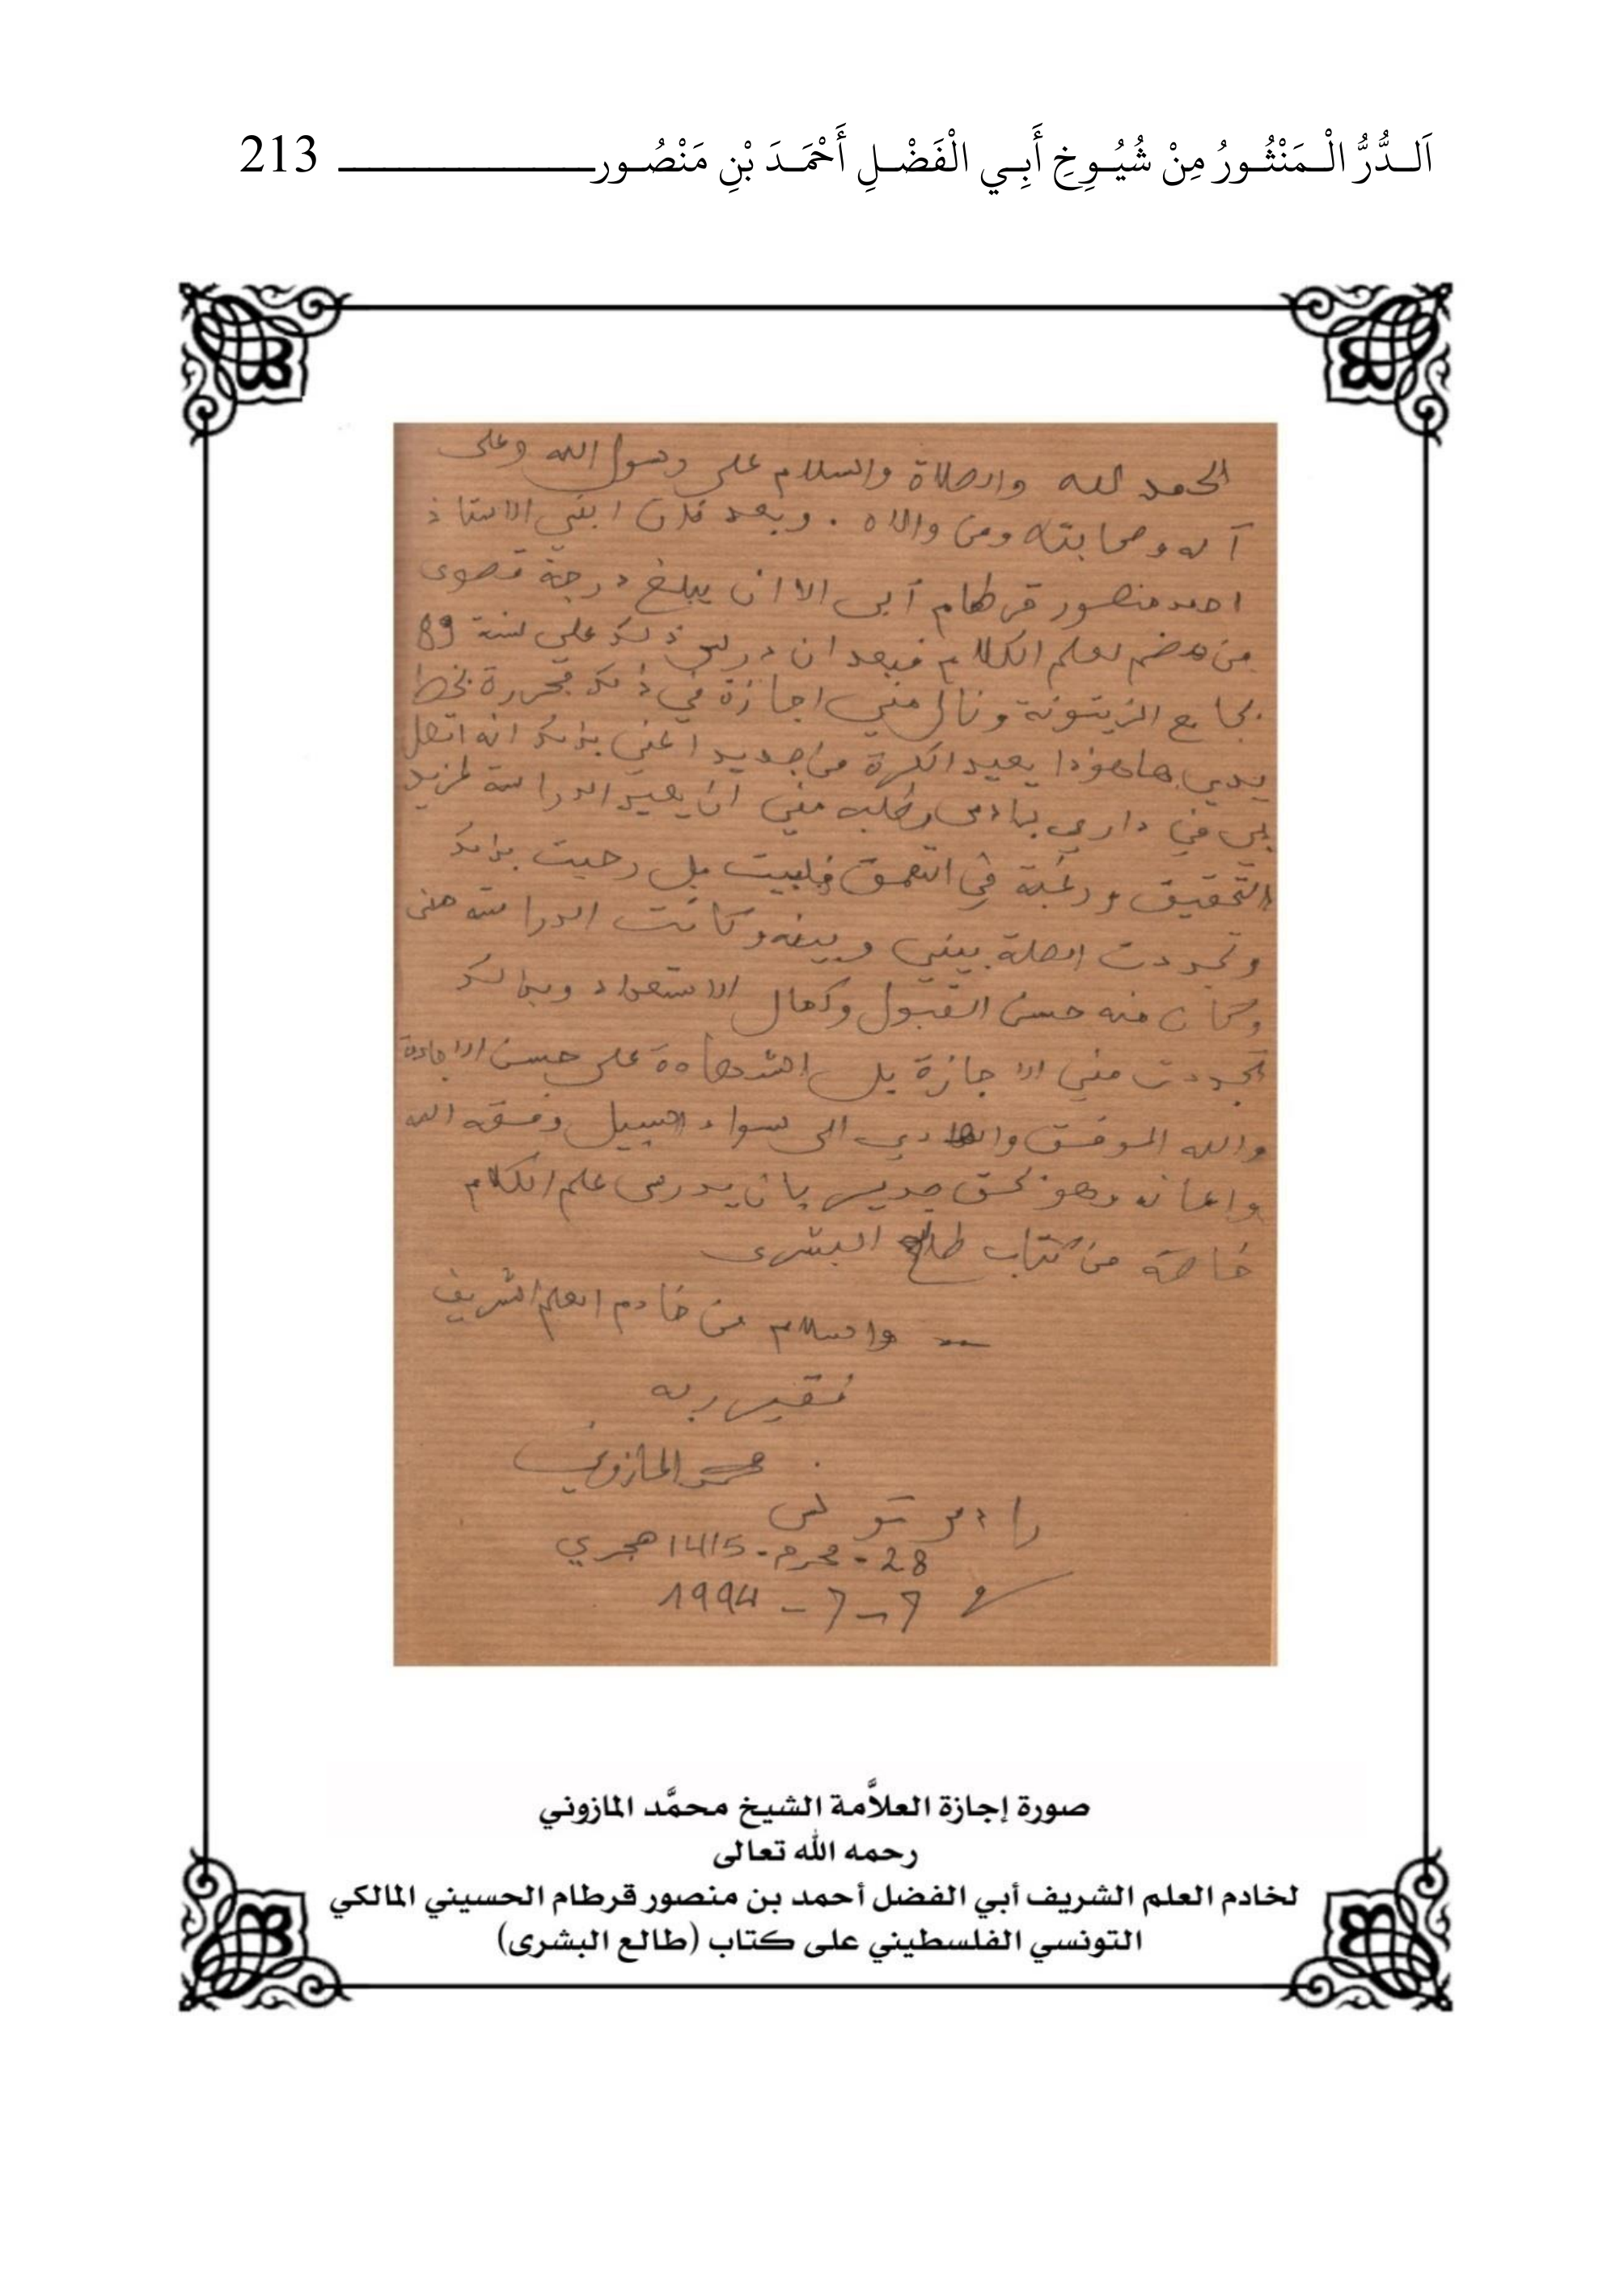 اَلـدُّرُّ الْـمَنْثُـورُ مِنْ شُيُـوخِ أَبِـي الْفَضْـلِ أَحْمَـدَ بْنِ مَنْصُـور 213
الحمد لله والصلاة والسلام على رسول الله وعلى
آله وصحابته ومن والاه . وبعد فان ابني الاستاذ
احمد منصور قرطام أبى الا ان يبلغ درجة قصوى
من هضم لعلم الكلام فبعد ان درس ذلك علي سنة 89
بجامع الزيتونة ونال مني اجازة في ذلك محررة بخط
يدي هاهوذا يعيد الكرة من جديد اعني بذلك انه اتصل
بي في داري برادس وطلب مني ان يعيد الدراسة لمزيد
التحقيق ورغبة في التعمق فلبيت بل رحبت بذلك
وتجددت الصلة بيني وبينه وكانت الدراسة مني
وكان منه حسن القبول وكمال الاستعداد وبذلك
تجددت مني الاجازة بل الشهادة على حسن الاجادة
والله الموفق والهادي الى سواء السبيل وفقه الله
واعانه وهو بحق جدير بان يدرس علم الكلام
خاصة من كتاب طالع البشرى
والسلام من خادم العلم الشريف
فقير ربه
محمد المازوني
رادس تونس
28 - محرم - 1415 هجري
7 - 7 - 1994
صورة إجازة العلاَّمة الشيخ محمَّد المازوني
رحمه الله تعالى
لخادم العلم الشريف أبي الفضل أحمد بن منصور قرطام الحسيني المالكي
التونسي الفلسطيني على كتاب (طالع البشرى)